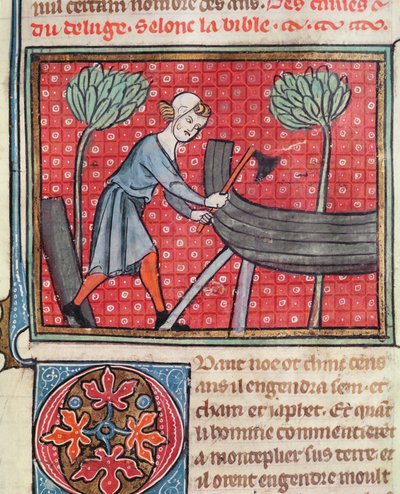 nul certain nombre des ans. Des causes
du deluge. Selonc la bible.
Quant noe ot chinc cens
ans il engendra sem. et
cham et iaphet. Et quāt
li homme commencierēt
a monteplier sus terre et
il orent engendre moult